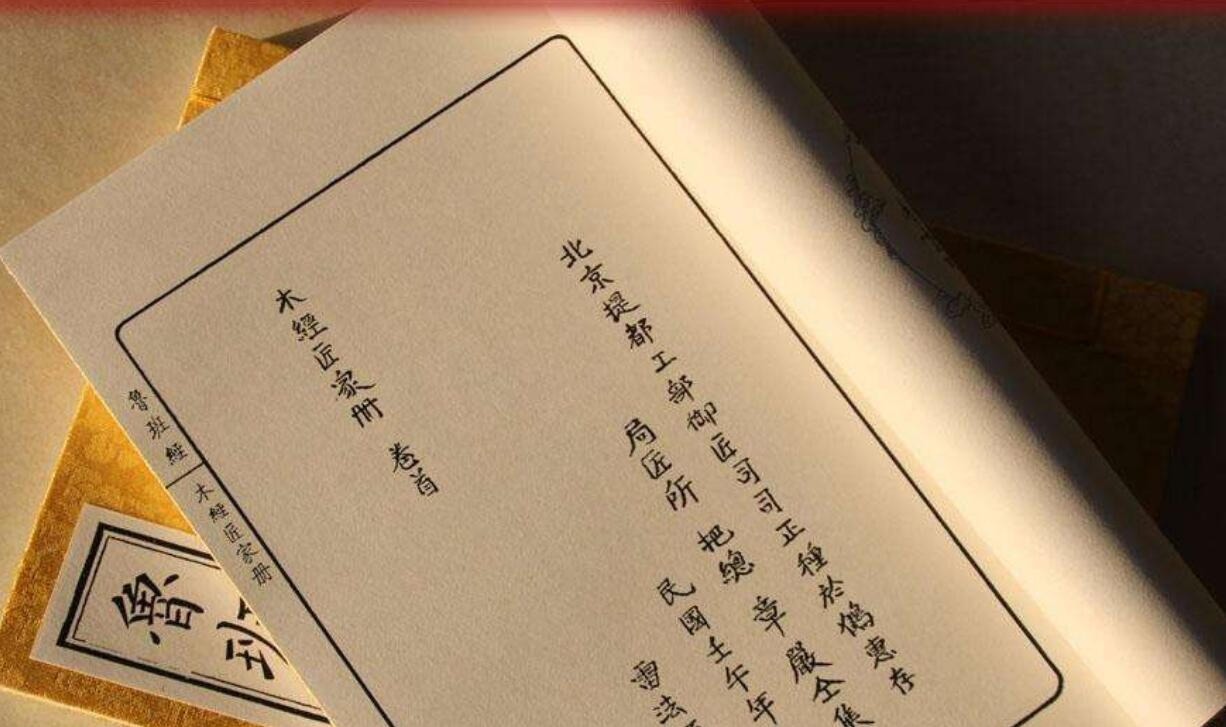 北京提都工部御匠司司正種於鶴惠存
局匠所 把總 章嚴仝集
民國壬午年
雷法
木經匠家册 卷首
魯班經
木經匠家册
魯班